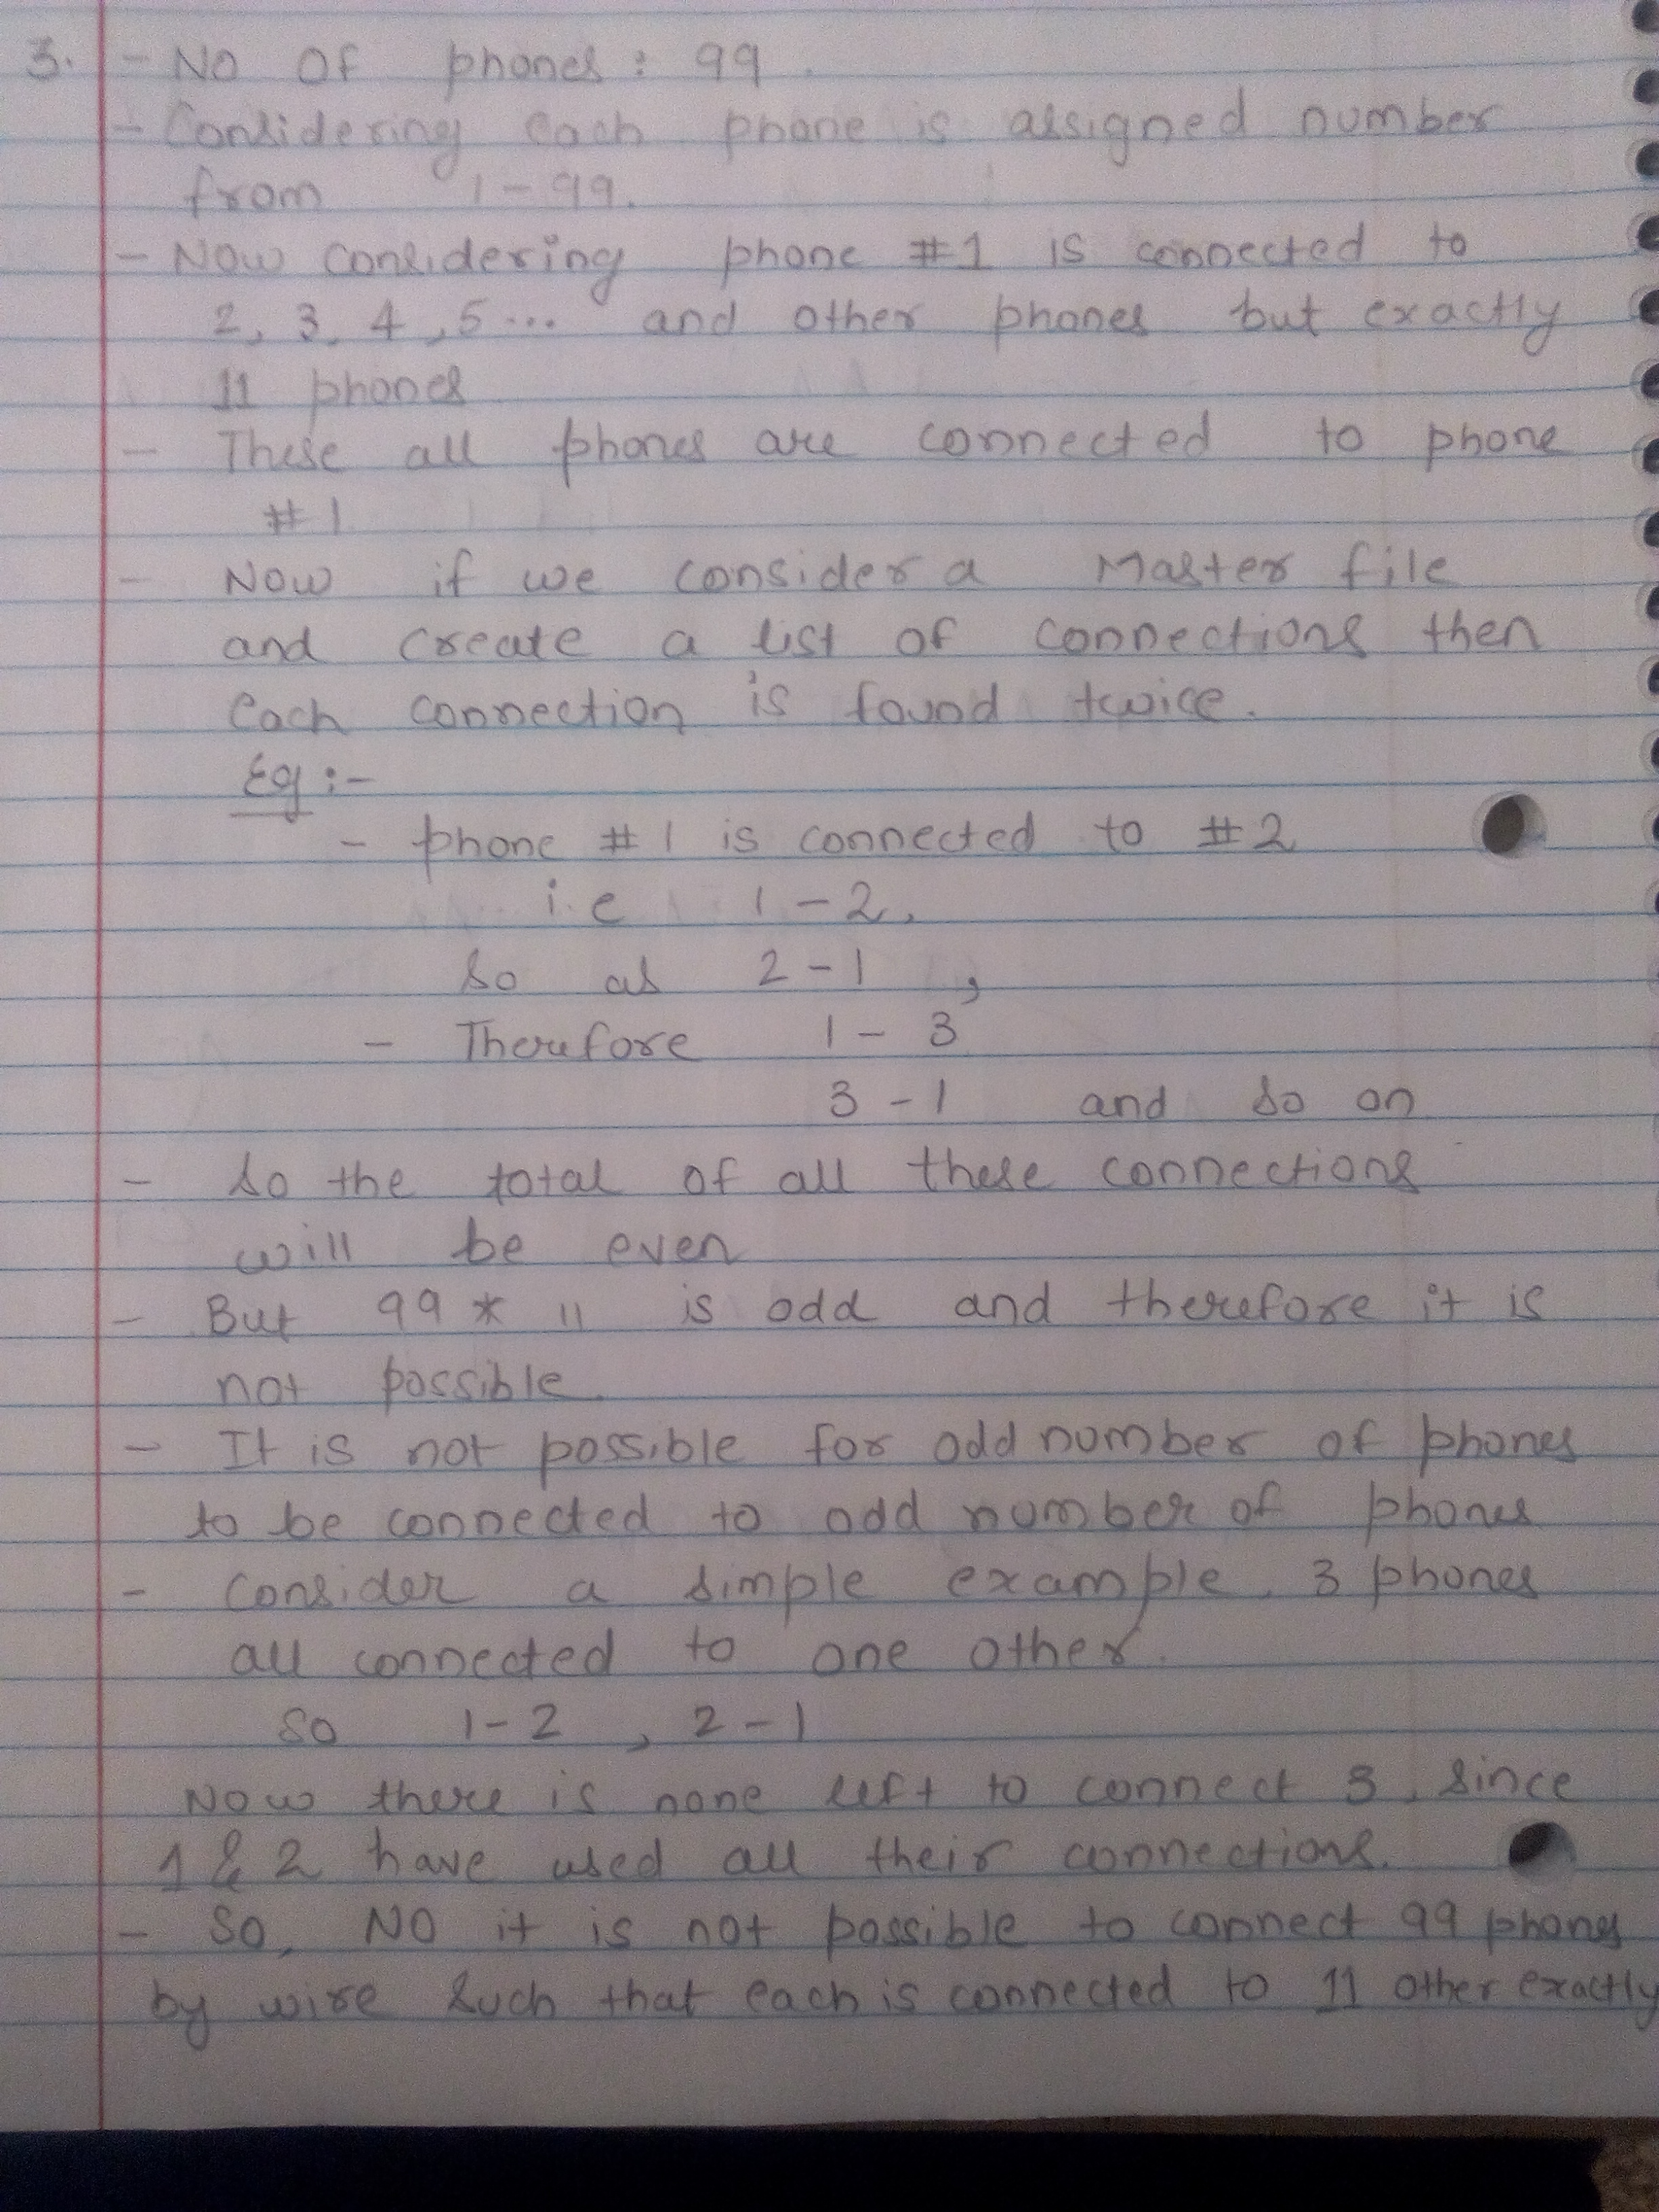 3. - No Of phones : 99.
- Considering each phone is assigned number
from 1 - 99.
- Now considering phone #1 is connected to
2, 3, 4, 5... and other phones but exactly
11 phones
- These all phones are connected to phone
#1
- Now if we consider a Master file
and create a list of connections then
each connection is found twice.
Eg :-
- phone #1 is connected to #2
i.e 1 - 2,
So as 2 - 1,
- Therefore 1 - 3
3 - 1 and so on
- So the total of all these connections
will be even
- But 99 * 11 is odd and therefore it is
not possible.
- It is not possible for odd number of phones
to be connected to odd number of phones
- Consider a simple example. 3 phones
all connected to one other.
So 1 - 2, 2 - 1
Now there is none left to connect 3, since
1 & 2 have used all their connections.
- So, NO it is not possible to connect 99 phones
by wire such that each is connected to 11 other exactly